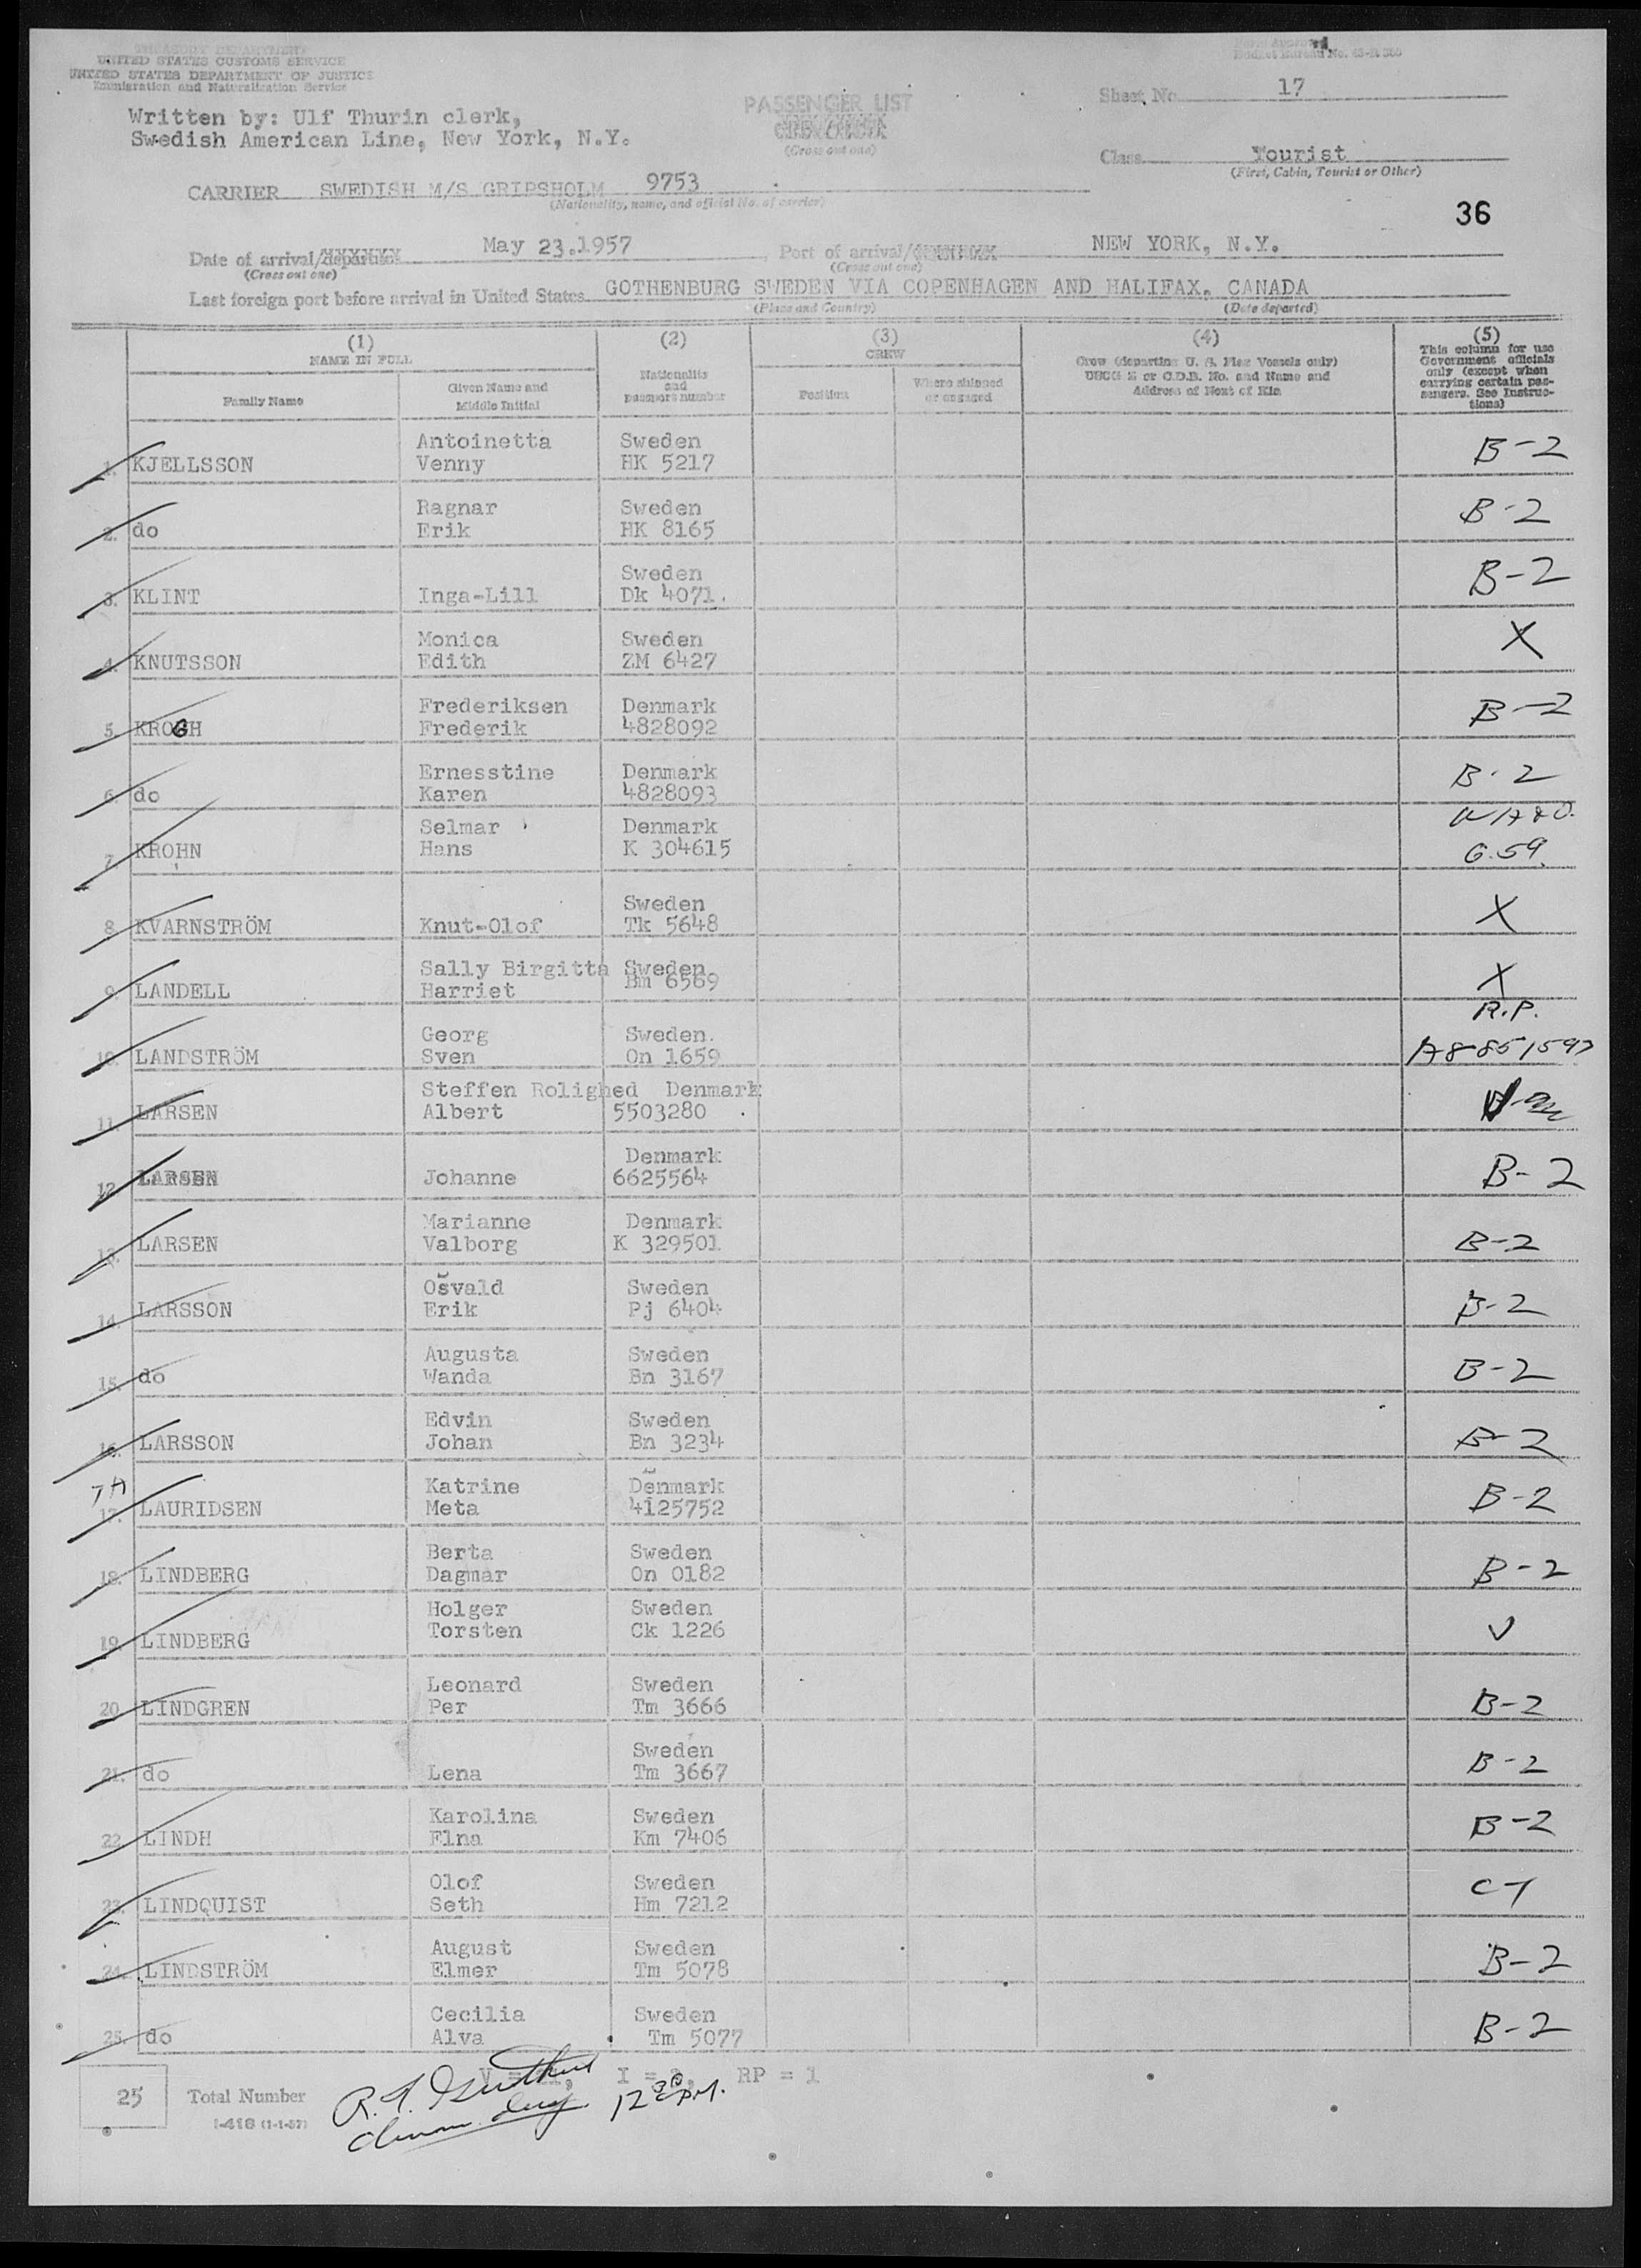 TREASURY DEPARTMENT
UNITED STATES CUSTOMS SERVICE
UNITED STATES DEPARTMENT OF JUSTICE
Immigration and Naturalization Service
Form Approved
Budget Bureau No. 43-R 300
Written by: Ulf Thurin clerk,
Swedish American Line, New York, N.Y.
PASSENGER LIST
(Cross out one)
Sheet No. 17
Class Tourist
(First, Cabin, Tourist or Other)
CARRIER SWEDISH M/S GRIPSHOLM 9753
(Nationality, name, and official No. of carrier)
36
Date of arrival/departure May 23.1957 , Port of arrival/ NEW YORK, N.Y.
(Cross out one) (Cross out one)
Last foreign port before arrival in United States GOTHENBURG SWEDEN VIA COPENHAGEN AND HALIFAX, CANADA
(Place and Country) (Date departed)
(1) (2) (3) (4) (5)
NAME IN FULL
Family Name
Given Name and
Middle Initial
Nationality
and
passport number
CREW
Position
Where shipped
or engaged
Crew (departing U. S. Flag Vessels only)
USCG Z or C.D.B. No. and Name and
Address of Next of Kin
This column for use
Government officials
only (except when
carrying certain pas-
sengers. See Instruc-
tions)
Antoinetta Sweden
1. KJELLSSON Venny HK 5217 B-2
Ragnar Sweden
2. do Erik HK 8165 B-2
Sweden
3. KLINT Inga-Lill Dk 4071. B-2
Monica Sweden X
4. KNUTSSON Edith ZM 6427
Frederiksen Denmark
5. KROGH Frederik 4828092 B-2
Ernesstine Denmark
6. do Karen 4828093 B-2
Selmar Denmark
7. KROHN Hans K 304615 6.59.
Sweden
8. KVARNSTRÖM Knut-Olof Tk 5648 X
Sally Birgitta Sweden
9. LANDELL Harriet Bm 6569 X
R.P.
Georg Sweden.
10. LANDSTRÖM Sven On 1659 A8851597
Steffen Rolighed Denmark
11. LARSEN Albert 5503280
Denmark
12. LARSEN Johanne 6625564 B-2
Marianne Denmark
13. LARSEN Valborg K 329501 B-2
Osvald Sweden
14. LARSSON Erik Pj 6404 B-2
Augusta Sweden
15. do Wanda Bn 3167 B-2
Edvin Sweden
16. LARSSON Johan Bn 3234 B-2
Katrine Denmark
17. LAURIDSEN Meta 4125752 B-2
Berta Sweden
18. LINDBERG Dagmar On 0182 B-2
Holger Sweden
19. LINDBERG Torsten Ck 1226 V
Leonard Sweden
20. LINDGREN Per Tm 3666 B-2
Sweden
21. do Lena Tm 3667 B-2
Karolina Sweden
22. LINDH Elna Km 7406 B-2
Olof Sweden
23. LINDQUIST Seth Hm 7212
August Sweden
24. LINDSTRÖM Elmer Tm 5078 B-2
Cecilia Sweden
25. do Alva Tm 5077 B-2
RP = 1
25 Total Number
I-418 (1-1-57)